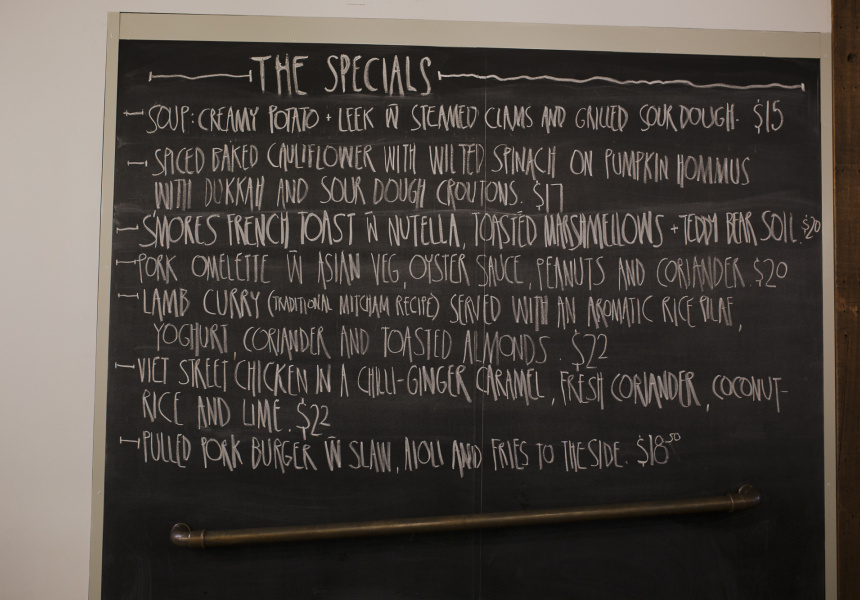 THE SPECIALS
SOUP: CREAMY POTATO + LEEK W STEAMED CLAMS AND GRILLED SOURDOUGH. $15
SPICED BAKED CAULIFLOWER WITH WILTED SPINACH ON PUMPKIN HOMMUS
WITH DUKKAH AND SOUR DOUGH CROUTONS. $17
S'MORES FRENCH TOAST W NUTELLA, TOASTED MARSHMELLOWS + TEDDY BEAR SOIL. $20
PORK OMELETTE W ASIAN VEG, OYSTER SAUCE, PEANUTS AND CORIANDER. $20
LAMB CURRY (TRADITIONAL MITCHAM RECIPE) SERVED WITH AN AROMATIC RICE PILAF,
YOGHURT, CORIANDER AND TOASTED ALMONDS. $22
VIET STREET CHICKEN IN A CHILLI-GINGER CARAMEL, FRESH CORIANDER, COCONUT-
RICE AND LIME. $22
PULLED PORK BURGER W SLAW, AIOLI AND FRIES TO THE SIDE. $18.50